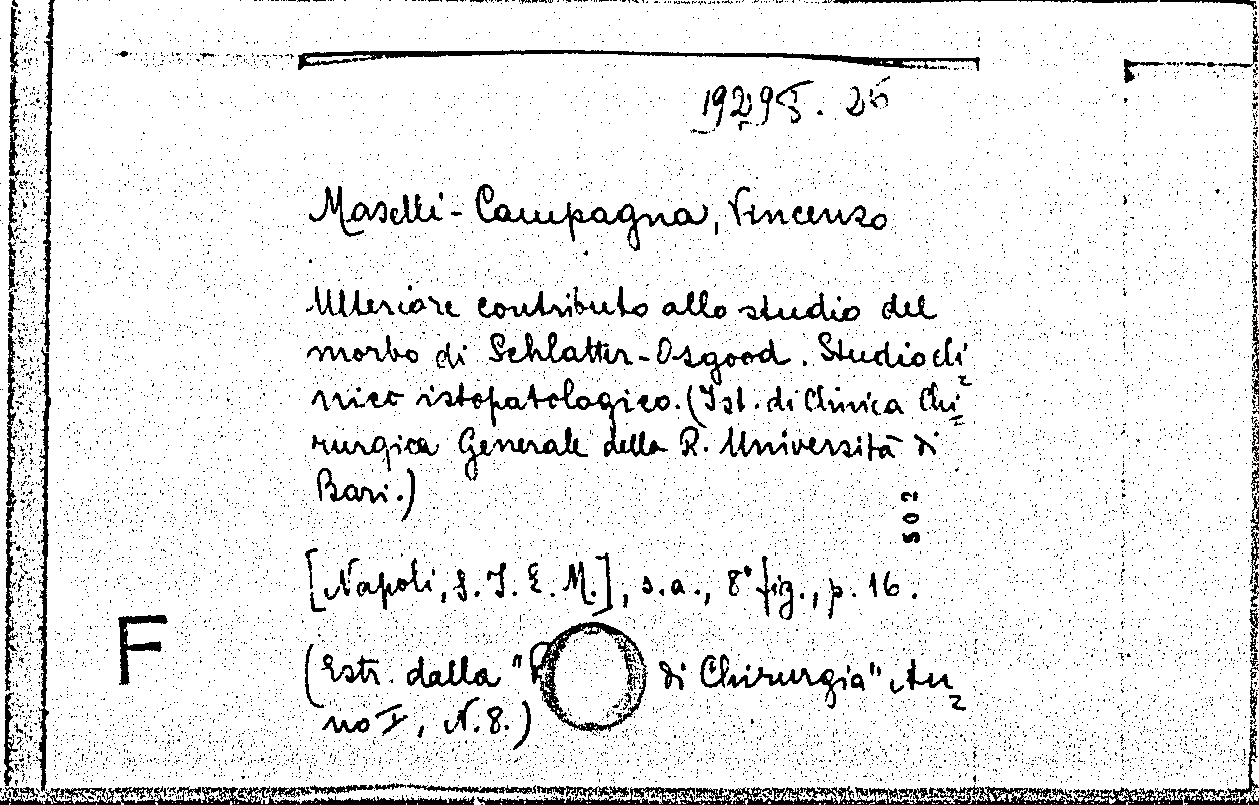 Maselli-Campagna, Vincenzo
Ulteriore contributo allo studio del
morbo di Schlatter-Osgood. Studio cli
nico istopatologico. (Ist. di Clinica Chi
rurgica Generale della R. Università di
Bari.)
502
[Napoli, S.I.E.M.], s.a., 8° fig., p. 16.
F
(Estr. dalla " di Chirurgia" An
no I, N. 8.)